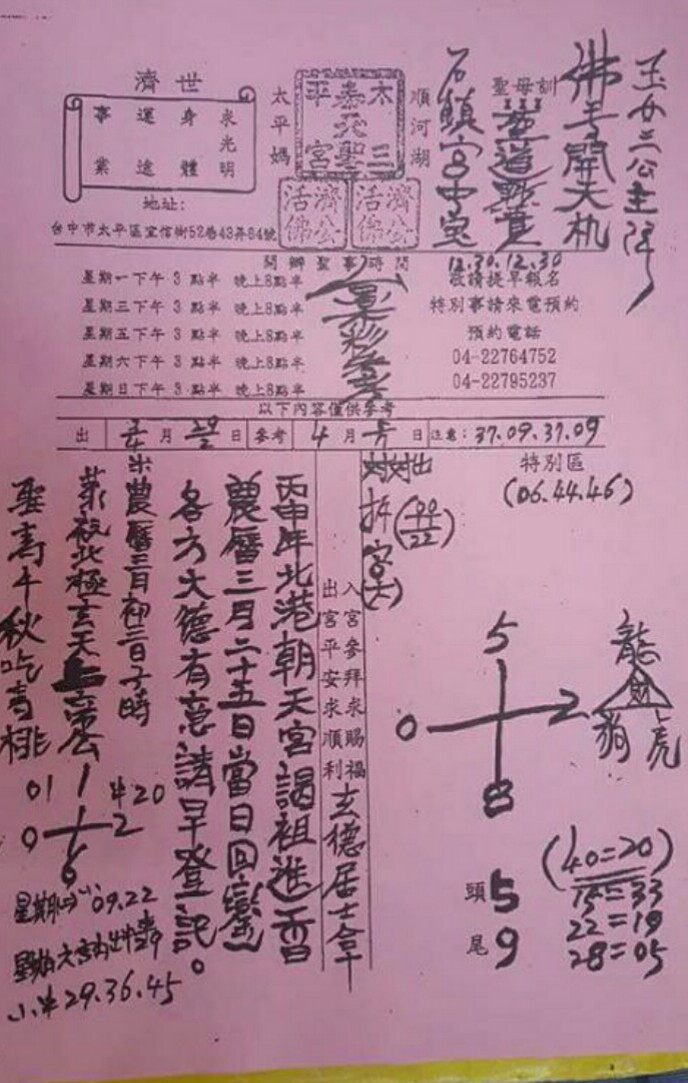 玉女三公主降
佛手開天机
聖母訓
石鎮宮中寶
12.30.12.30
順河湖
太泰平
三天聖宮
濟公活佛
濟公活佛
太平媽
濟世
求光明
身體
運途
事業
地址:
台中市太平區宜信街52巷43弄64號
開辦聖事時間
星期一下午 3 點半 晚上8點半
星期三下午 3 點半 晚上8點半
星期五下午 3 點半 晚上8點半
星期六下午 3 點半 晚上8點半
星期日下午 3 點半 晚上8點半
敬請提早報名
特別事請來電預約
預約電話
04-22764752
04-22795237
以下內容僅供參考
出 月 日 參考 4 月 日 注意: 37.09.37.09
特別區
(06.44.46)
對對出
拆字(六)
(99
22)
5
0 2
8
龍
財
狗 虎
頭 5
尾 9
(40=20)
15=33
22=19
28=05
入宮參拜求賜福
出宮平安求順利
玄德居士拿
丙申年北港朝天宮謁祖進香
農曆三月二十五日當日回鑾
各方大德有意請早登記。
農曆三月初三日子時
恭祝北極玄天上帝公
聖壽千秋吃壽桃
01 1 20
0 2
6
09.22
29.36.45